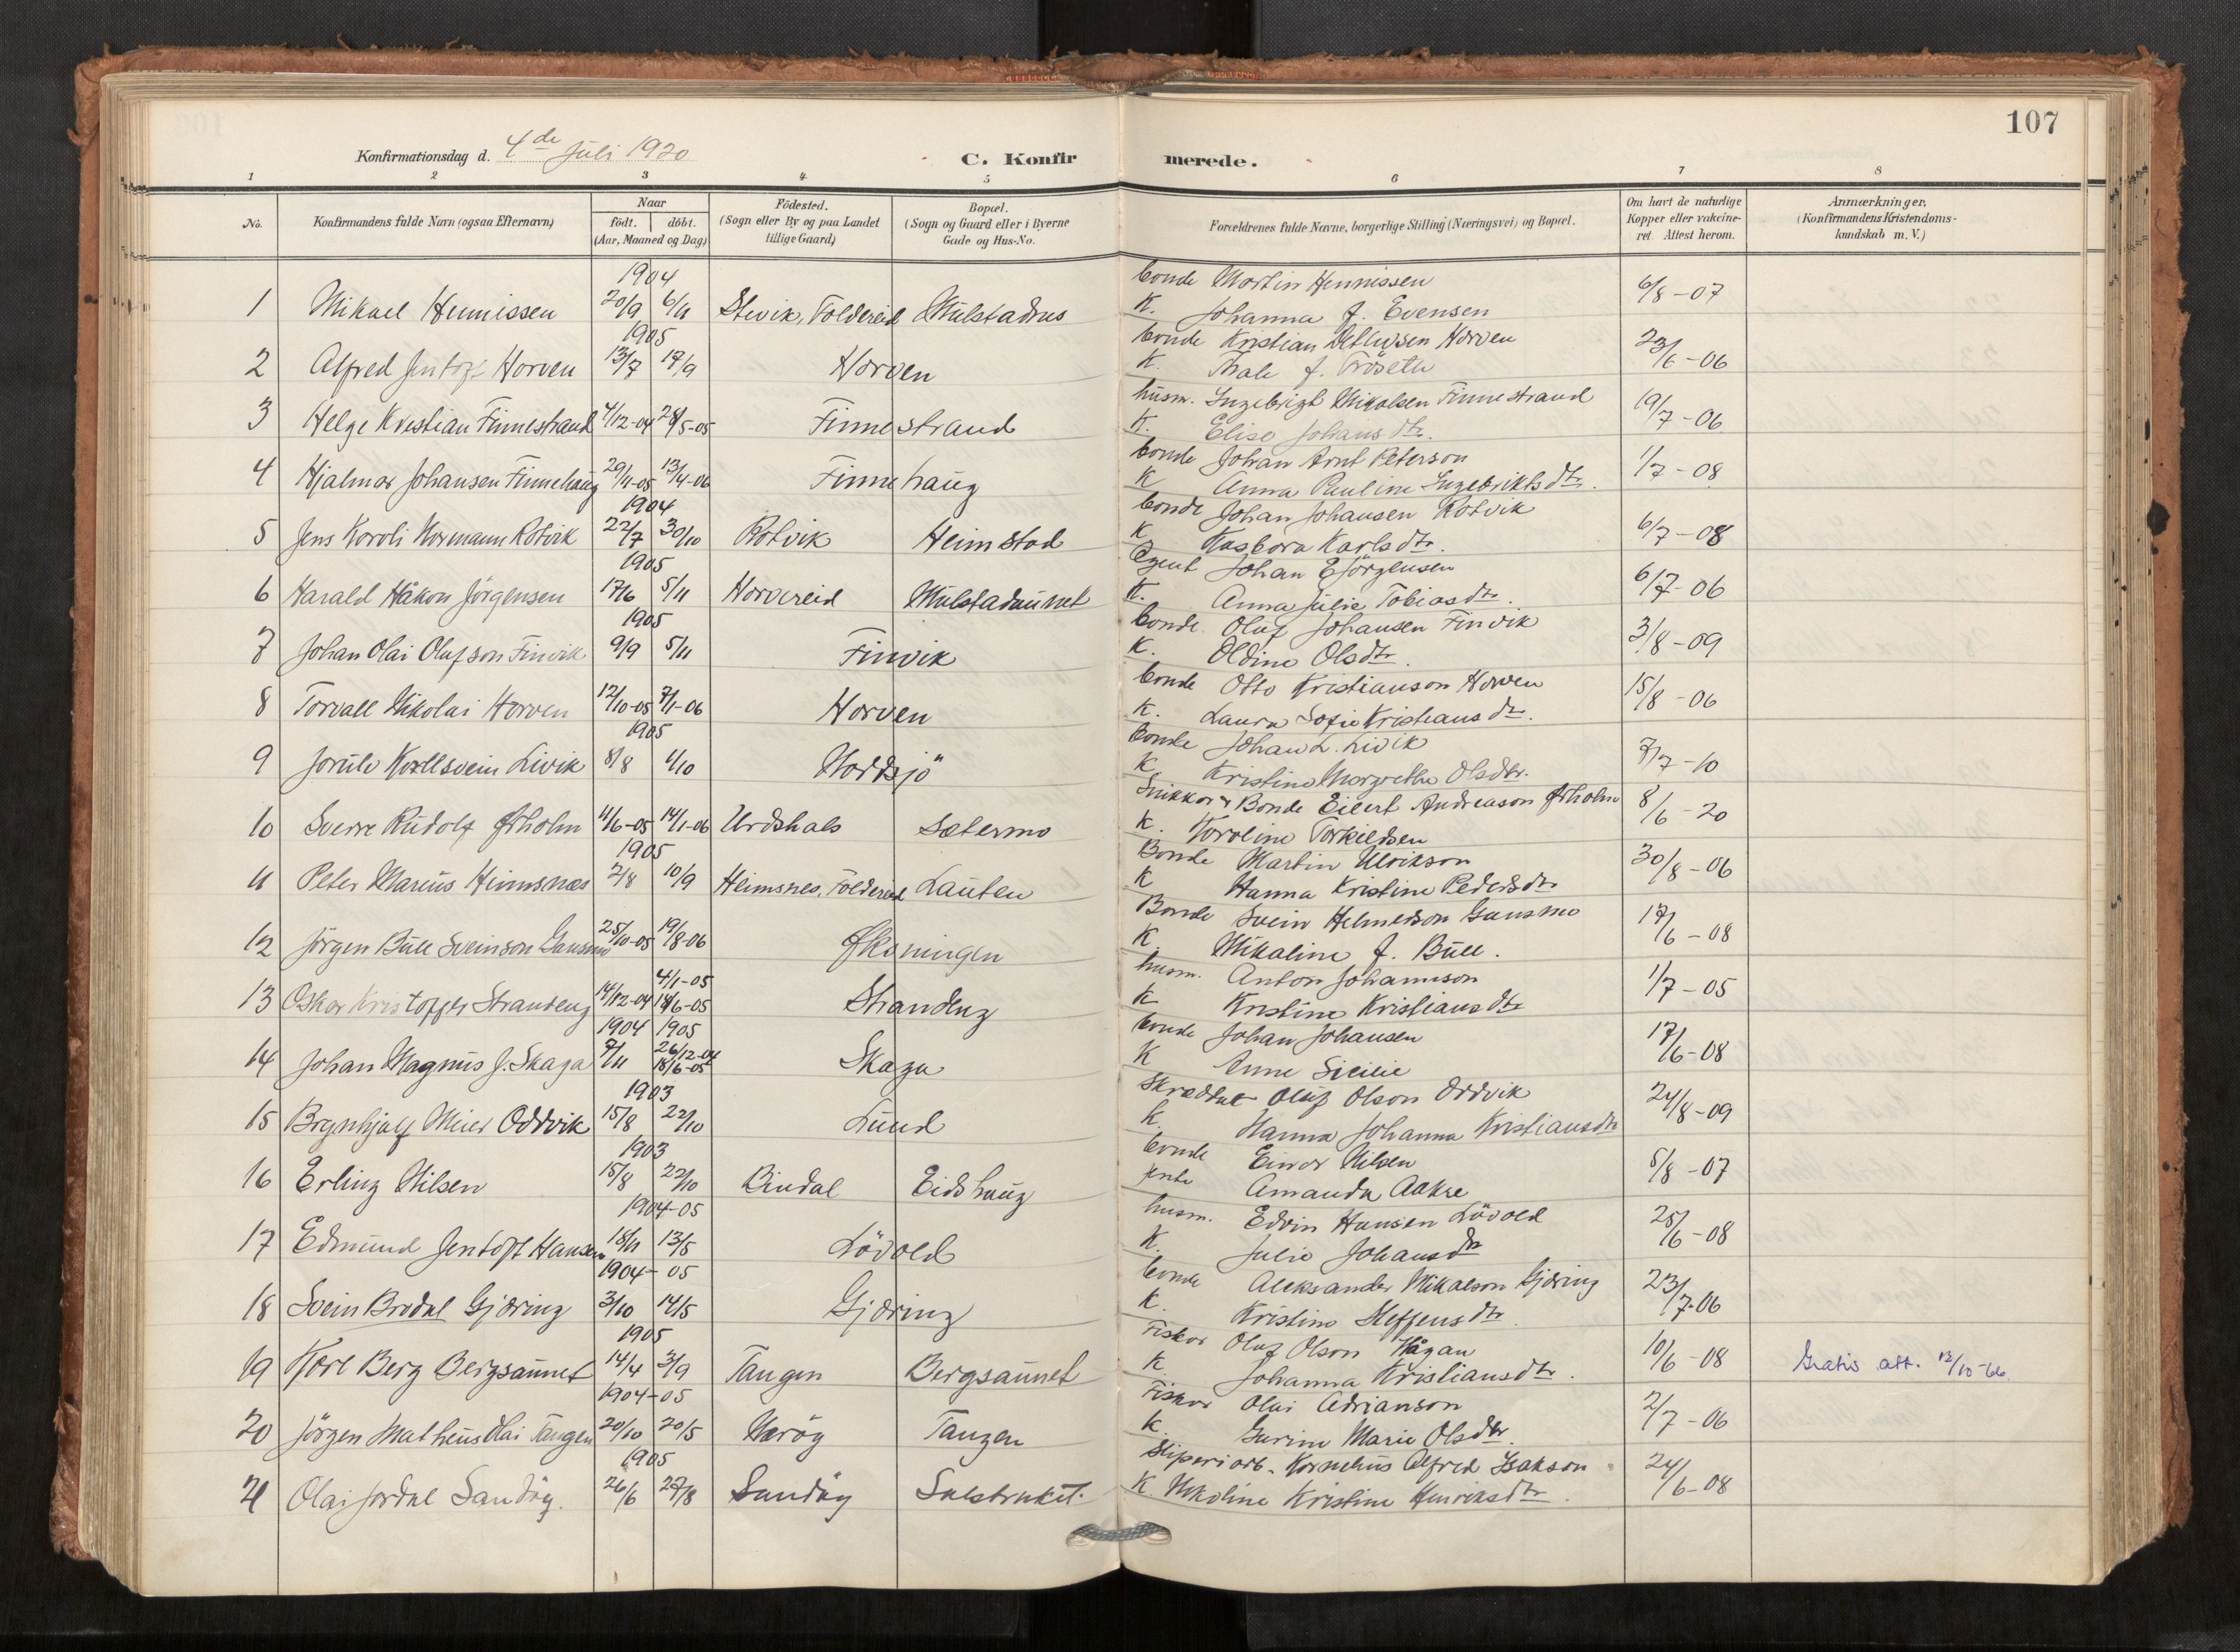 107
Konfirmationsdag d. 4de Juli 1920
C. Konfirmerede.
1 2 3 4 5 6 7 8
No.
Konfirmandens fulde Navn (ogsaa Efternavn)
Naar
født. døbt.
(Aar, Maaned og Dag)
Födested.
(Sogn eller By og paa Landet
tillige Gaard)
Bopæl.
(Sogn og Gaard eller i Byerne
Gade og Hus-No.
Forældrenes fulde Navne, borgerlige Stilling (Næringsvei) og Bopæl.
Om havt de naturlige
Kopper eller vakcine-
ret. Attest herom.
Anmærkninger,
(Konfirmandens Kristendoms-
kundskab m. V.)
1904 bonde Martin Hennissen
1 Mikael Hennissen 20/9 6/11 Stevik, Foldereid K. Johanna f. Evensen 6/8-07
1905 bonde Kristian Horven
2 Alfred Jentoft Horven 13/7 17/9 Horven K. f. Fröseth 23/6-06
husm. Ingebrigt Mikalsen Finnestrand
3 Helge Kristian Finnestrand 4/12-04 28/5-05 Finnestrand K. Elise Johansdtr. 19/7-06
bonde Johan Arnt Peterson
4 Hjalmar Johansen Finnehaug 29/11-05 13/4-06 Finnehaug K Anna Pauline Ingebriktsdtr. 1/7-08
1904 bonde Johan Johansen Rotvik
5 Jens Karoli Normann Rotvik 22/7 30/10 Rotvik Heimstad K Karlsdtr. 6/7-08
1905 Agent Johan E Jörgensen
6 Harald Håkon Jörgensen 17/6 5/11 Horvereid Mulstadaunet K. Anna Julie Tobiasdtr. 6/7-06
1905 bonde Oluf Johansen Finvik
7 Johan Olai Olufson Finvik 9/9 5/11 Finvik K. Oldine Olsdtr. 3/8-09
bonde Otto Kristianson Horven
8 Torvall Nikolai Horven 12/10-05 7/1-06 Horven K. Laura Sofie Kristiansdtr. 15/8-06
1905 bonde Johan L. Livik
9 Livik 8/8 1/10 K Kristine Margrethe Olsdtr. 7/7-10
Snikker & Bonde Eilert Andreason Ørholm
10 Sverre Rudolf Ørholm 11/6-05 14/1-06 Urdshals Sætermo K. Karoline Torkildsen 8/6-20
1905 Bonde Martin Ulrikson
11 Peter Marius Heimsnæs 2/8 10/9 Heimsnes, Foldereid Lauten K Hanna Kristine Pedersdtr 30/8-06
Bonde Svein Helmerson Gansmo
12 Jörgen Bull Sveinson Gansmo 25/10-05 19/8-06 Øksningen K. Mikaline f. Bull. 17/6-08
4/1-05 husm. Anton Johannson
13 Oskar Kristoffer Strandeng 14/12-04 18/6-05 Strandeng K Kristine Kristiansdtr 1/7-05
1904 1905 bonde Johan Johansen
14 Johan Magnus J. Skaga 7/11 26/12-04 18/6-05 Skaga K Anne Sicilie 17/6-08
1903 Skrædder Oluf Olson Oddvik
15 Brynhjulf Meier Oddvik 15/8 22/10 Lund K. Hanna Johanna Kristiansdtr 24/8-09
1903 bonde Einar Nilsen
16 Erling Nilsen 15/8 22/10 Bindal Eidshaug jente Amanda Aakre 5/8-07
1904-05 husm. Edvin Hansen Lövold
17 Edmund Jentoft Hansen 18/11 13/5 Lövold K. Julie Johansdtr 25/6-08
1904-05 bonde Aleksander Mikalson Gjæring
18 Svein Brodal Gjæring 3/10 14/5 Gjæring K. Kristine Steffensdtr. 23/7-06
1905 Fisker Oluf Olson Hågan
19 Kåre Berg Bergsaunet 14/4 3/9 Tangen Bergsaunet K Johanna Kristiansdtr. 10/6-08 Gratis att. 12/10-66.
1904-05 Fisker Olai Adrianson
20 Jörgen Matheus Olai Tangen 20/10 20/5 Nærøy Tangen K. Gurine Marie Olsdtr. 2/7-06
1905 Sliperiarb. Kornelius Alfred Isakson
21 Olai Jordal Sandöy. 26/6 27/8 Sandöy Salsbruket. K. Nikoline Kristine Henriksdtr. 24/6-08